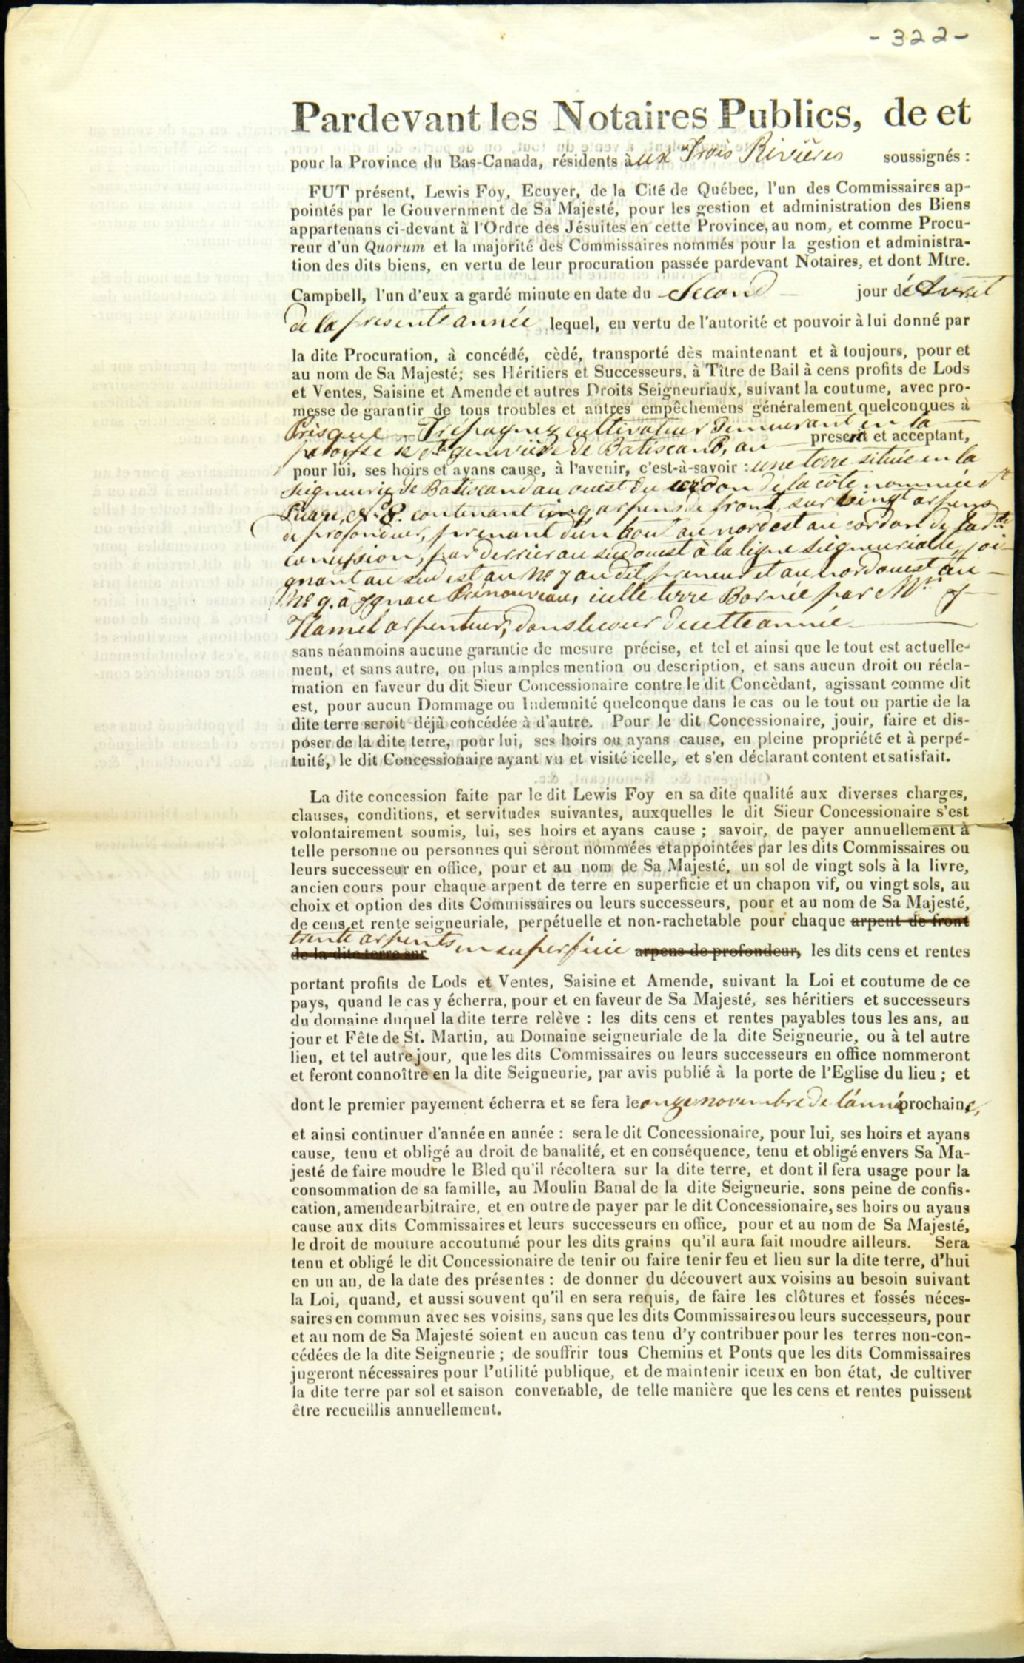 - 322 -
Pardevant les Notaires Publics, de et
pour la Province du Bas-Canada, résidents aux Trois Rivières soussignés :
FUT présent, Lewis Foy, Ecuyer, de la Cité de Québec, l'un des Commissaires ap-
pointés par le Gouvernment de Sa Majesté, pour les gestion et administration des Biens
appartenans ci-devant à l'Ordre des Jésuites en cette Province, au nom, et comme Procu-
reur d'un Quorum et la majorité des Commissaires nommés pour la gestion et administra-
tion des dits biens, en vertu de leur procuration passée pardevant Notaires, et dont Mtre.
Campbell, l'un d'eux a gardé minute en date du Second jour d'Avril
de la presente année, lequel, en vertu de l'autorité et pouvoir à lui donné par
la dite Procuration, à concédé, cèdé, transporté dès maintenant et à toujours, pour et
au nom de Sa Majesté; ses Héritiers et Successeurs, à Tître de Bail à cens profits de Lods
et Ventes, Saisine et Amende et autres Droits Seigneuriaux, suivant la coutume, avec pro-
messe de garantir de tous troubles et autres empêchemens généralement quelconques à
Prisque Trepagnez cultivateur demeurant en la
paroisse Ste genevieve de Batiscand, au present et acceptant,
pour lui, ses hoirs et ayans cause, à l'avenir, c'est-à-savoir : une terre située en la
seigneurie de Batiscand au ouest du cordon de la côte nommée St
No. 8. contenant cinq arpens de front, sur vingt arpens
de profondeur, prenant d'un bout au nord est au cordon de la dte
concession, par derriere au sud ouest à la ligne seigneuriale, joi-
gnant au sud est au No 7 au dit preneur et au nord ouest au
No 9. à Ignace icelle terre Bornée par Mr J
Hamel arpenteur, dans le cour de cette année
sans néanmoins aucune garantie de mesure précise, et tel et ainsi que le tout est actuelle-
ment, et sans autre, ou plus amples mention ou description, et sans aucun droit ou récla-
mation en faveur du dit Sieur Concessionaire contre le dit Concèdant, agissant comme dit
est, pour aucun Dommage ou Indemnité quelconque dans le cas ou le tout ou partie de la
dite terre seroit déjà concédée à d'autre. Pour le dit Concessionaire, jouir, faire et dis-
poser de la dite terre, pour lui, ses hoirs ou ayans cause, en pleine propriété et à perpé-
tuité, le dit Concessionaire ayant vu et visité icelle, et s'en déclarant content et satisfait.
La dite concession faite par le dit Lewis Foy en sa dite qualité aux diverses charges,
clauses, conditions, et servitudes suivantes, auxquelles le dit Sieur Concessionaire s'est
volontairement soumis, lui, ses hoirs et ayans cause ; savoir, de payer annuellement à
telle personne ou personnes qui seront nommées et appointées par les dits Commissaires ou
leurs successeur en office, pour et au nom de Sa Majesté, un sol de vingt sols à la livre,
ancien cours pour chaque arpent de terre en superficie et un chapon vif, ou vingt sols, au
choix et option des dits Commissaires ou leurs successeurs, pour et au nom de Sa Majesté,
de cens et rente seigneuriale, perpétuelle et non-rachetable pour chaque arpent de front
trente arpents en superficie
de la dite terre sur arpens de profondeur, les dits cens et rentes
portant profits de Lods et Ventes, Saisine et Amende, suivant la Loi et coutume de ce
pays, quand le cas y écherra, pour et en faveur de Sa Majesté, ses héritiers et successeurs
du domaine duquel la dite terre relève : les dits cens et rentes payables tous les ans, au
jour et Fête de St. Martin, au Domaine seigneuriale de la dite Seigneurie, ou à tel autre
lieu, et tel autre jour, que les dits Commissaires ou leurs successeurs en office nommeront
et feront connoître en la dite Seigneurie, par avis publié à la porte de l'Eglise du lieu ; et
dont le premier payement écherra et se fera le onze novembre de l'année prochaine,
et ainsi continuer d'année en année : sera le dit Concessionaire, pour lui, ses hoirs et ayans
cause, tenu et obligé au droit de banalité, et en conséquence, tenu et obligé envers Sa Ma-
jesté de faire moudre le Bled qu'il récoltera sur la dite terre, et dont il fera usage pour la
consommation de sa famille, au Moulin Banal de la dite Seigneurie, sons peine de confis-
cation, amende arbitraire, et en outre de payer par le dit Concessionaire, ses hoirs ou ayans
cause aux dits Commissaires et leurs successeurs en office, pour et au nom de Sa Majesté,
le droit de mouture accoutumé pour les dits grains qu'il aura fait moudre ailleurs. Sera
tenu et obligé le dit Concessionaire de tenir ou faire tenir feu et lieu sur la dite terre, d'hui
en un an, de la date des présentes : de donner du découvert aux voisins au besoin suivant
la Loi, quand, et aussi souvent qu'il en sera requis, de faire les clôtures et fossés néces-
saires en commun avec ses voisins, sans que les dits Commissaires ou leurs successeurs, pour
et au nom de Sa Majesté soient en aucun cas tenu d'y contribuer pour les terres non-con-
cédées de la dite Seigneurie ; de souffrir tous Chemins et Ponts que les dits Commissaires
jugeront nécessaires pour l'utilité publique, et de maintenir iceux en bon état, de cultiver
la dite terre par sol et saison convenable, de telle manière que les cens et rentes puissent
être recueillis annuellement.